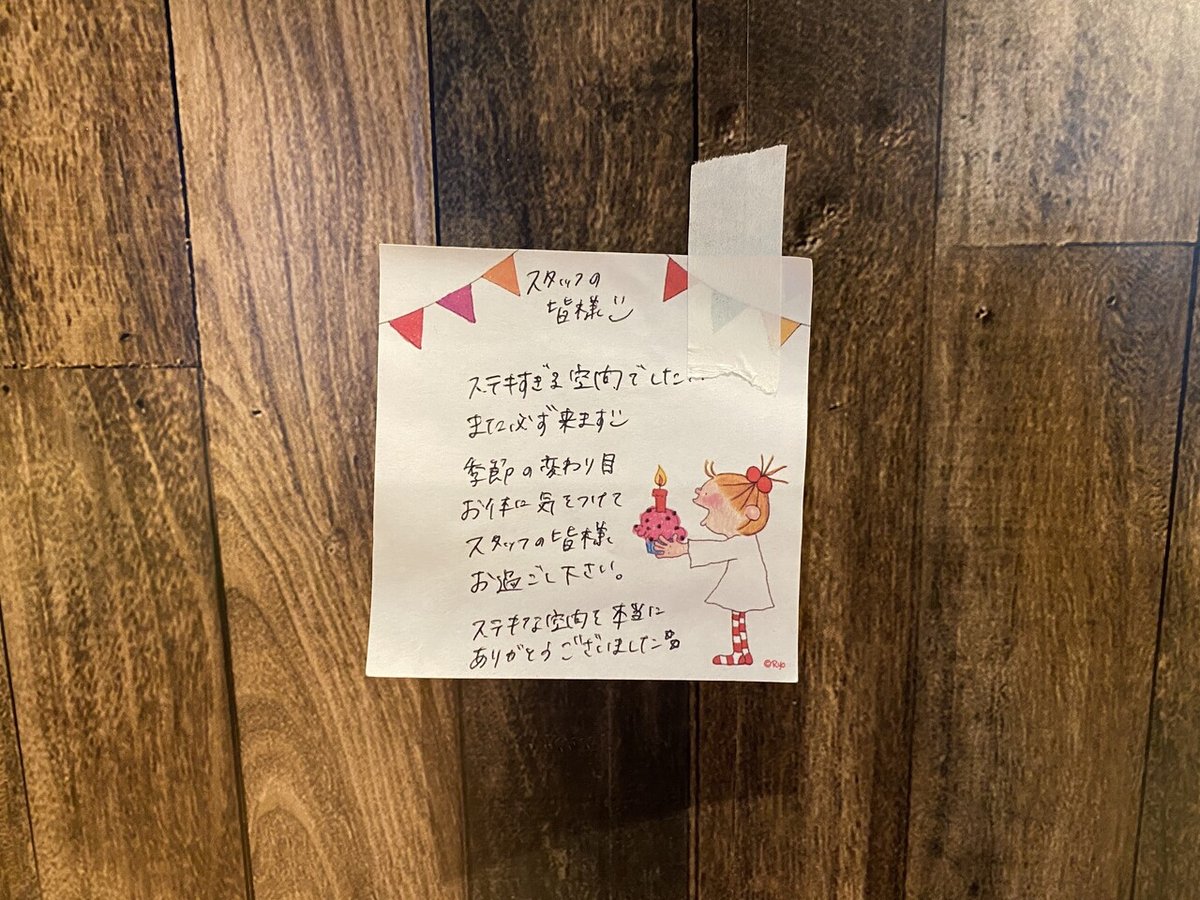 スタッフの
皆様
ステキすぎる空間でした
また必ず来ます
季節の変わり目
お体に気をつけて
スタッフの皆様
お過ごし下さい。
ステキな空間を本当に
ありがとうございました
©Ryo